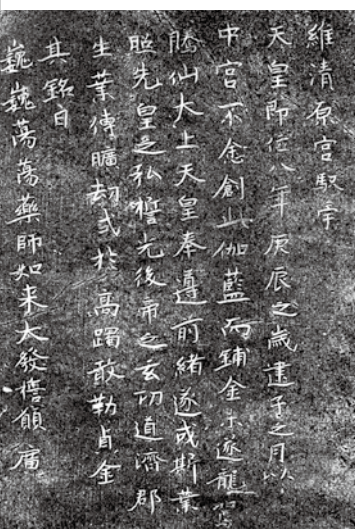 維清原宮馭宇
天皇即位八年庚辰之歲建子之月以
中宮不悆創此伽藍而鋪金未遂龍駕
騰仙大上天皇奉遵前緒遂成斯業
照先皇之弘誓光後帝之玄功道濟郡
生業傳曠劫式於高躅敢勒貞金
其銘曰
巍巍蕩蕩藥師如来大發誓願廣